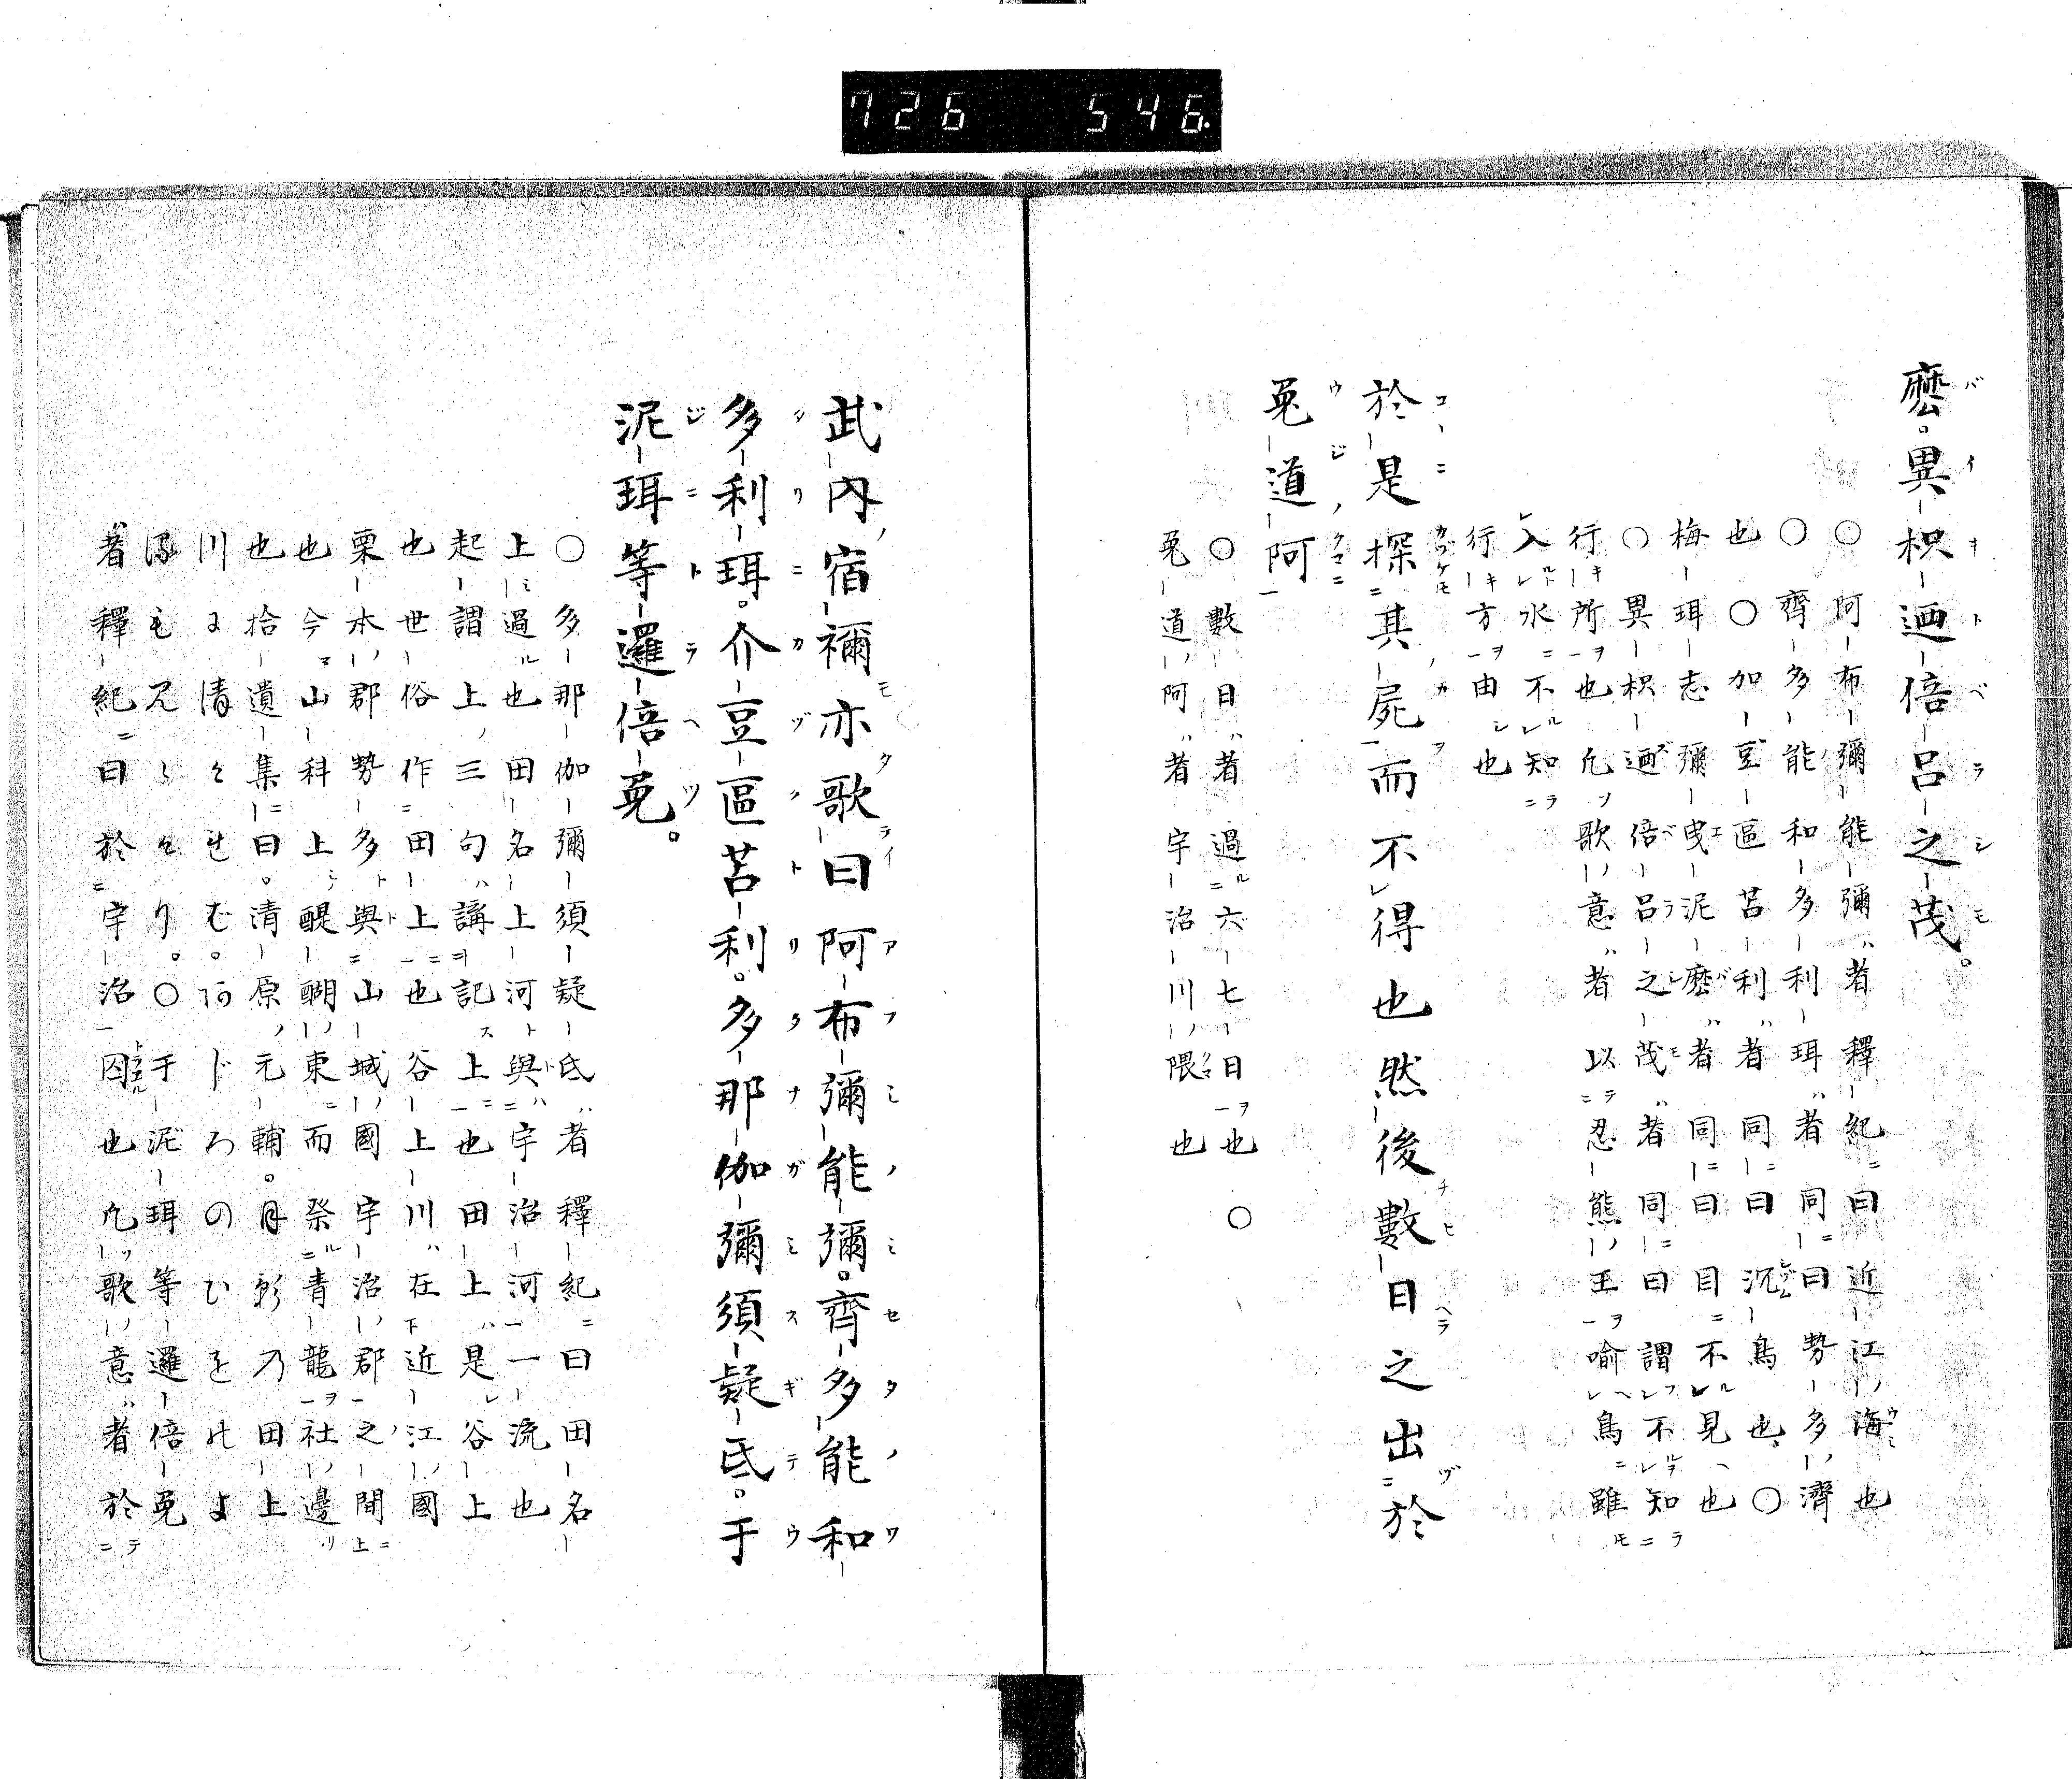 726 546.
麼。異枳廼倍呂之茂。
○阿布彌能彌者釋紀曰近江海也
○齊多能和多利珥者同曰勢多濟
也○加豆區苫利者同曰沉鳥也○
梅珥志彌曳泥麼者同曰目不見也
○異枳廼倍呂之茂者同曰謂不知
行所也凡歌意者以忍熊王喻鳥雖
入水不知
行方由也
於是探其屍而不得也然後數日之出於
菟道阿
○數日者過六七日也○
菟道阿者宇治川隈也
武內宿禰亦歌曰阿布彌能彌。齊多能和
多利珥。介豆區苫利。多那伽彌須疑氐。于
泥珥等邏倍菟。
○多那伽彌須疑氐者釋紀曰田名
上過也田名上河與宇治河一流也
起謂上三句講記上也田上是谷上
也世俗作田上也谷上川在近江國
栗本郡勢多與山城國宇治郡之間
也今山科上醍醐東而祭青龍社邊
也拾遺集曰。清原元輔。月影乃田上
川に清くせむ。阿じろのひをれよ
○于泥珥等邏倍菟
者釋紀曰於宇治囚也凡歌意者於